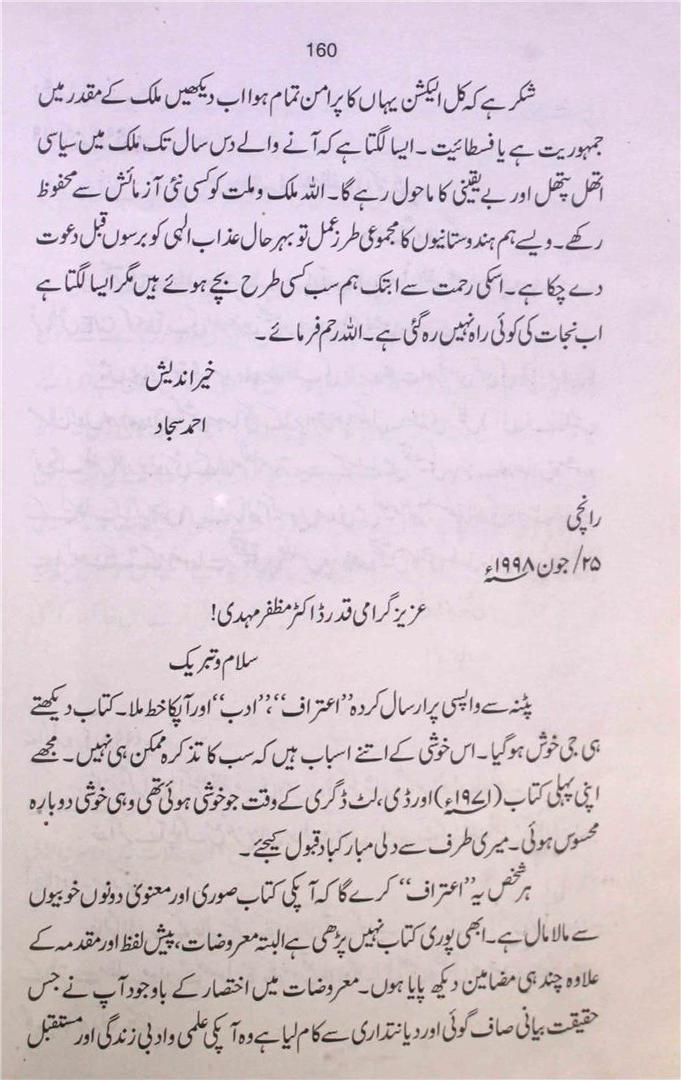 160
شکر ہے کہ کل الیکشن یہاں کا پرامن تمام ہوا اب دیکھیں ملک کے مقدر میں
جمہوریت ہے یا فسطائیت ۔ ایسا لگتا ہے کہ آنے والے دس سال تک ملک میں سیاسی
اتھل پتھل اور بے یقینی کا ماحول رہے گا۔ اللہ ملک و ملت کو کسی نئی آزمائش سے محفوظ
رکھے۔ ویسے ہم ہندوستانیوں کا مجموعی طرز عمل تو بہرحال عذاب الہی کو برسوں قبل دعوت
دے چکا ہے۔ اسکی رحمت سے ابتک ہم سب کسی طرح بچے ہوئے ہیں مگر ایسا لگتا ہے
اب نجات کی کوئی راہ نہیں رہ گئی ہے۔ اللہ رحم فرمائے ۔
خیر اندیش
احمد سجاد
رانچی
۲۵/ جون ۱۹۹۸ء
عزیز گرامی قدر ڈاکٹر مظفر مہدی!
سلام و تبریک
پٹنہ سے واپسی پر ارسال کردہ ’’اعتراف‘‘، ’’ادب‘‘ اور آپکا خط ملا۔ کتاب دیکھتے
ہی جی خوش ہوگیا۔ اس خوشی کے اتنے اسباب ہیں کہ سب کا تذکرہ ممکن ہی نہیں۔ مجھے
اپنی پہلی کتاب (۱۹۷۱ء) اور ڈی، لٹ ڈگری کے وقت جو خوشی ہوئی تھی وہی خوشی دوبارہ
محسوس ہوئی۔ میری طرف سے دلی مبارکباد قبول کیجئے۔
ہر شخص یہ ’’اعتراف‘‘ کرے گا کہ آپکی کتاب صوری اور معنوی دونوں خوبیوں
سے مالا مال ہے۔ ابھی پوری کتاب نہیں پڑھی ہے البتہ معروضات، پیش لفظ اور مقدمہ کے
علاوہ چند ہی مضامین دیکھ پایا ہوں۔ معروضات میں اختصار کے باوجود آپ نے جس
حقیقت بیانی صاف گوئی اور دیانتداری سے کام لیا ہے وہ آپکی علمی و ادبی زندگی اور مستقبل